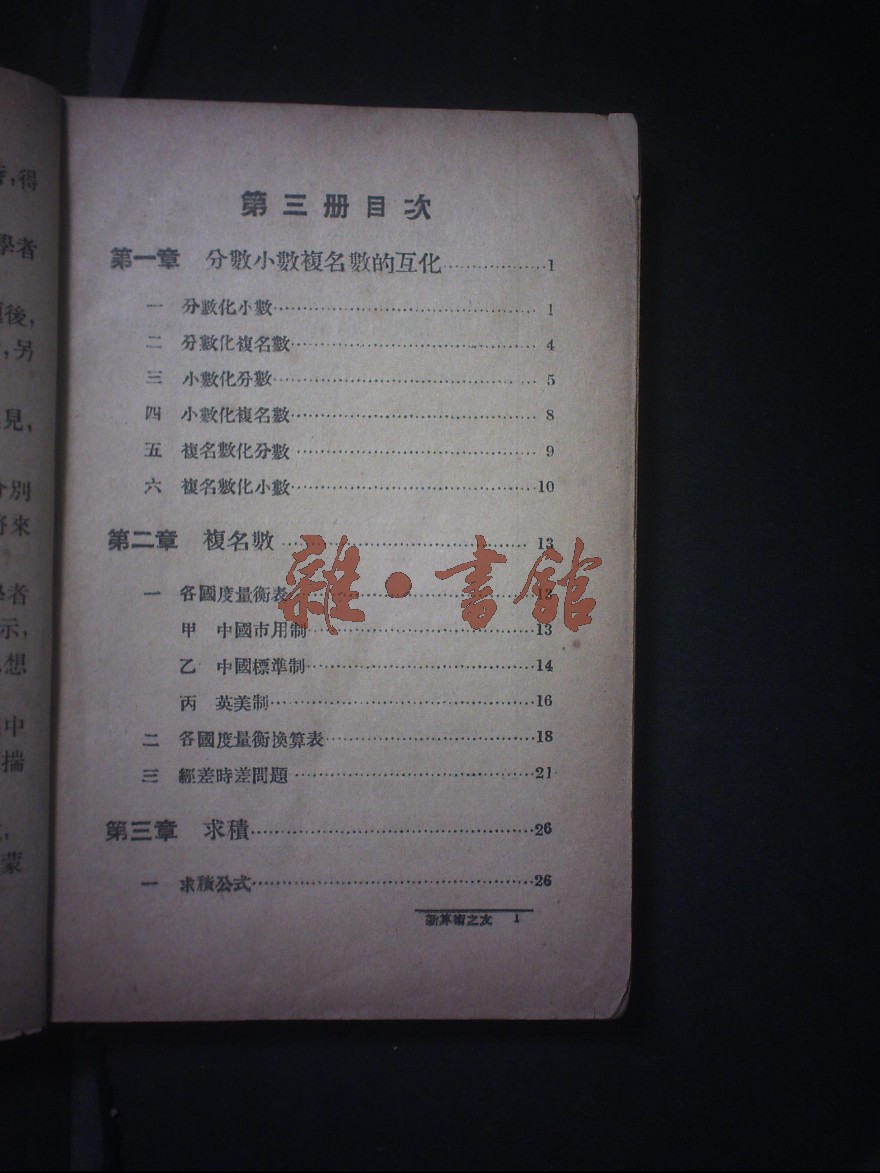 得
學者
後,
另
見,
分別
將來
學者
示,
想
中
揣
蒙
第三册目次
第一章 分數小數複名數的互化………………1
一 分數化小數………………1
二 分數化複名數………………4
三 小數化分數………………5
四 小數化複名數………………8
五 複名數化分數………………9
六 複名數化小數………………10
第二章 複名數………………13
一 各國度量衡表………………13
甲 中國市用制………………13
乙 中國標準制………………14
丙 英美制………………16
二 各國度量衡換算表………………18
三 經差時差問題………………21
第三章 求積………………26
一 求積公式………………26
新算術之友 1
雜·書館